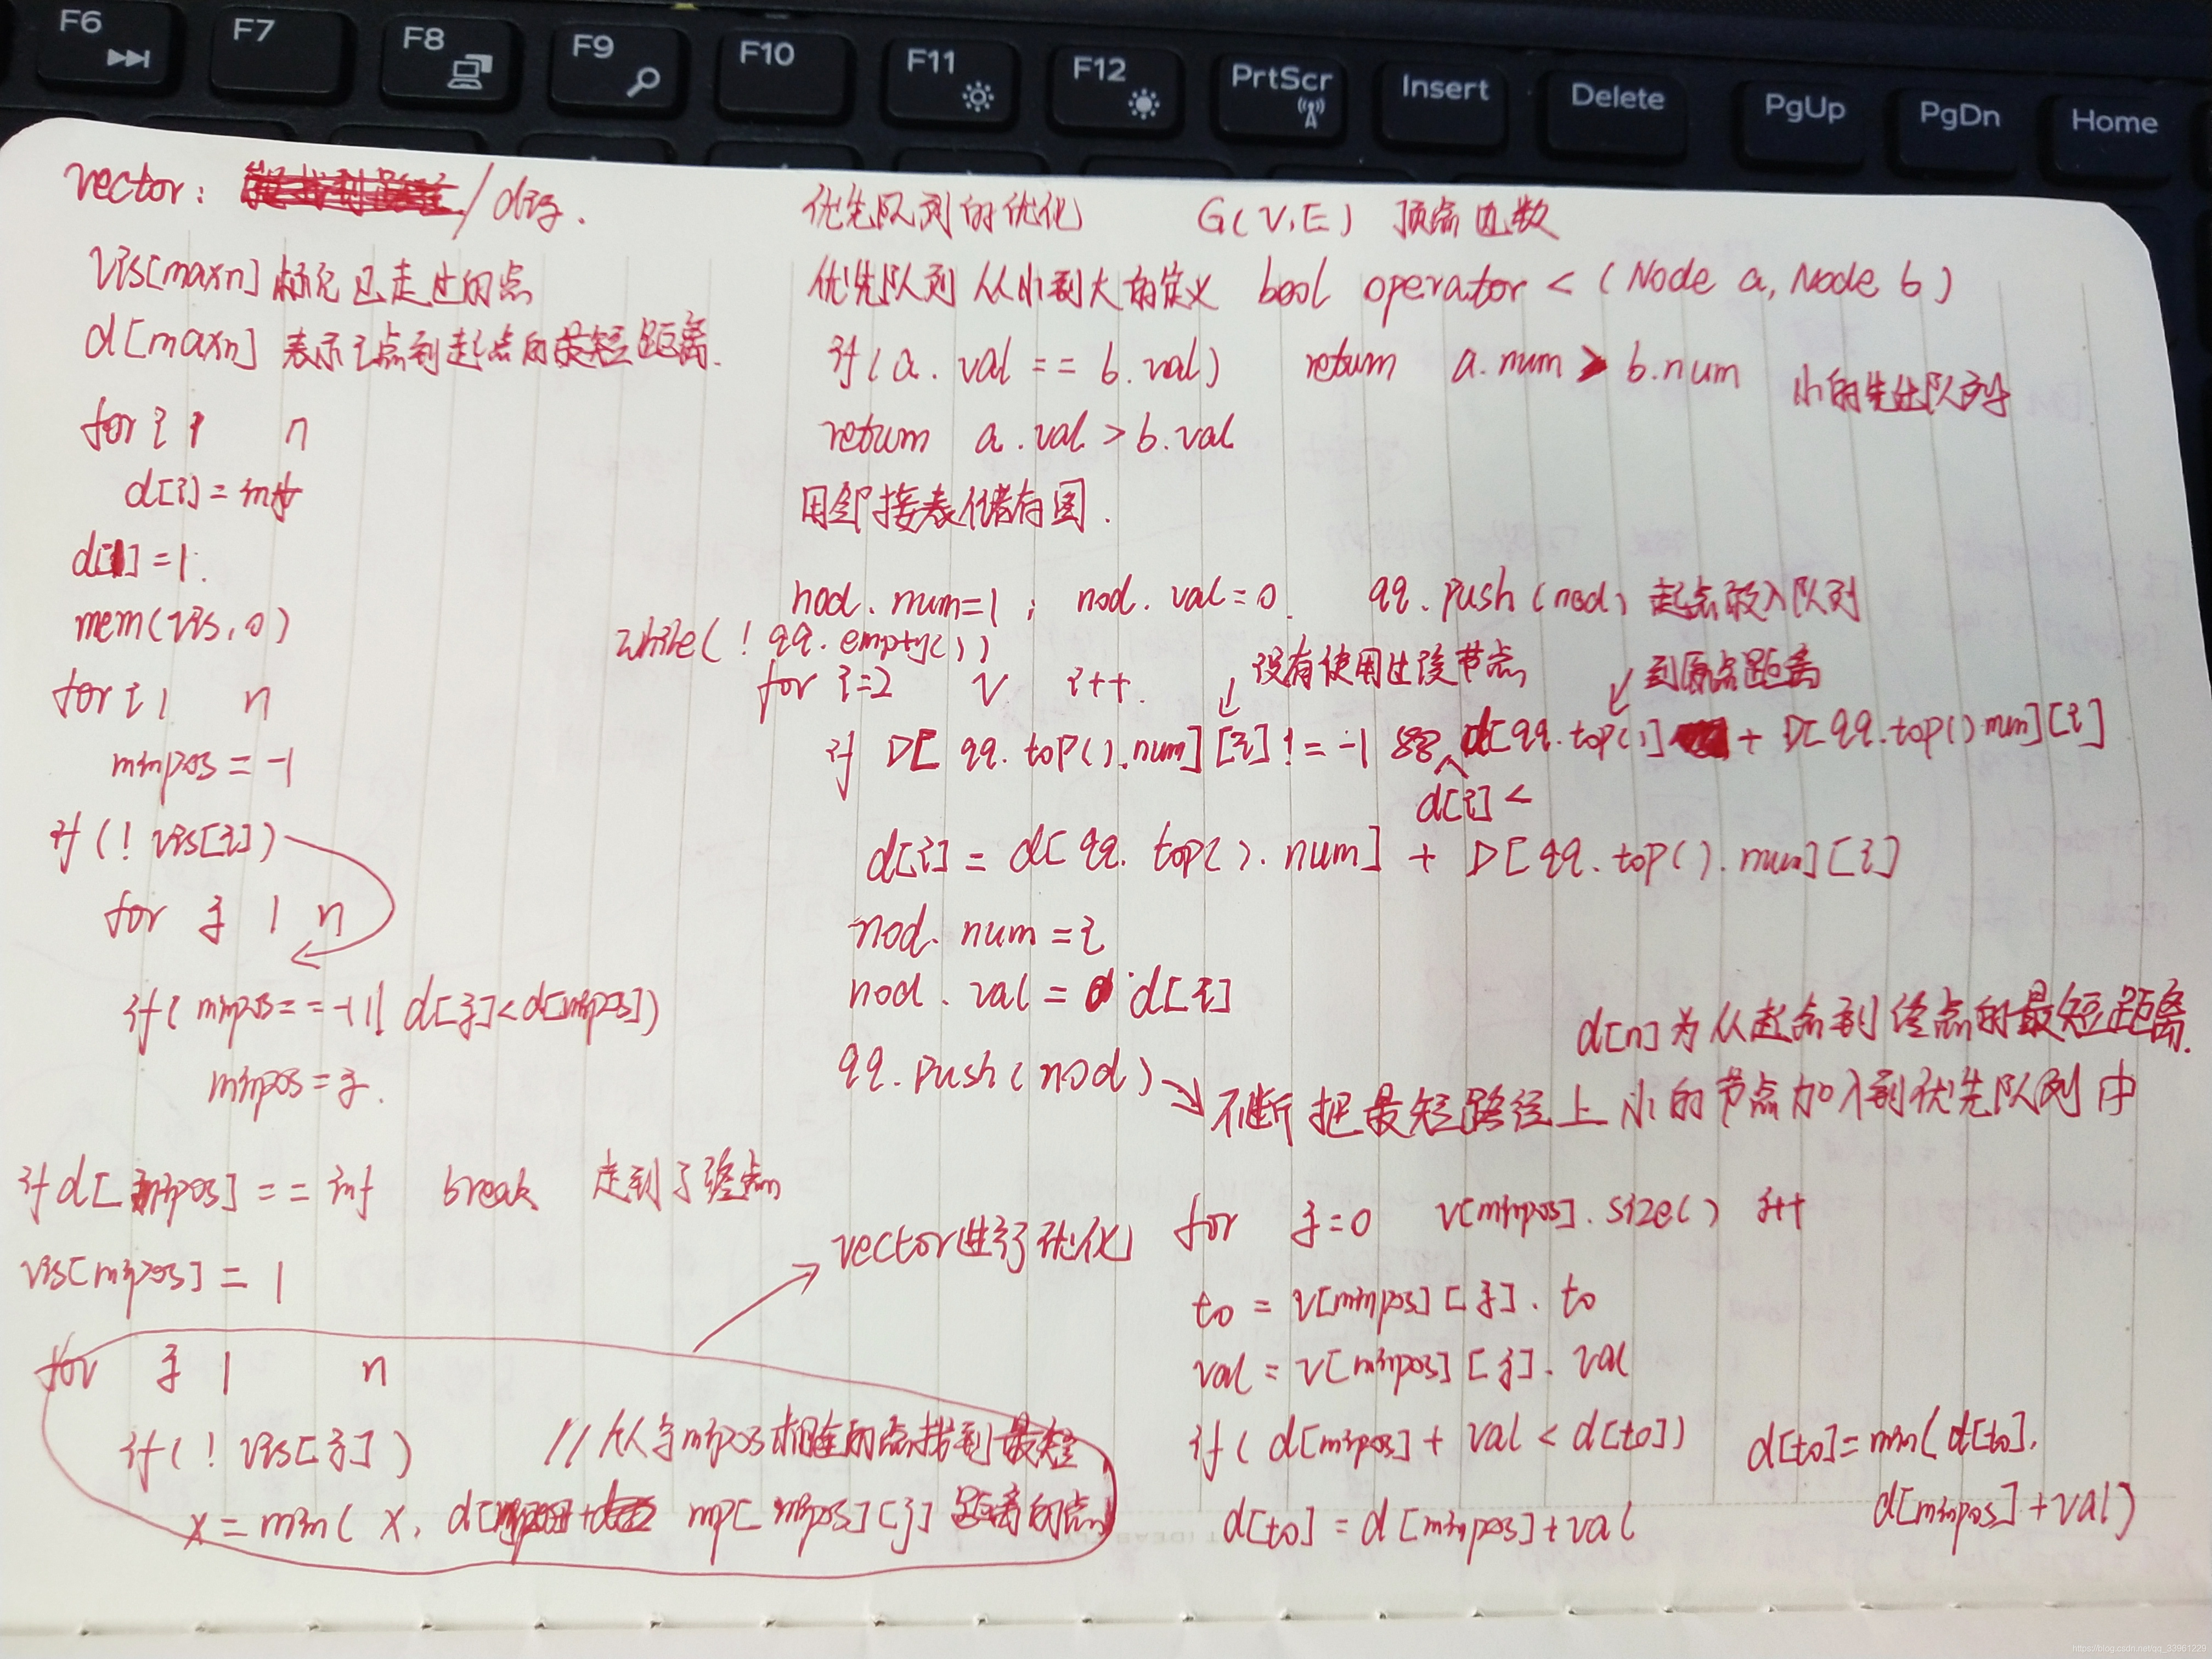 F6 F7 F8 F9 F10 F11 F12 PrtScr Insert Delete PgUp PgDn Home
vector: / dij.
vis[maxn] 标记已走过的点
d[maxn] 表示i点到起点的最短距离.
for i 1 n
d[i] = inf
d[1] = 1.
mem(vis, 0)
for i 1 n
minpos = -1
if (! vis[i])
for j 1 n
if( minpos == -1 || d[j] < d[minpos])
minpos = j.
if d[minpos] == inf break 走到了终点
vis[minpos] = 1
for j 1 n
if( ! vis[j] ) // 从与minpos相连的点找到最短
x = min( x, d[ mp[minpos][j] 距离的点
优先队列的优化 G(V,E) 顶点 边数
优先队列从小到大的定义 bool operator < (Node a, Node b)
if(a.val == b.val) return a.num > b.num 小的先出队列
return a.val > b.val
用邻接表储存图.
nod.num=1; nod.val=0. qq.push(nod) 起点放入队列
while( ! qq.empty())
for i=2 V i++. 没有使用过该节点 到原点距离
if D[qq.top().num][i] != -1 && d[qq.top()] + D[qq.top().num][i]
d[i] <
d[i] = d[qq.top().num] + D[qq.top().num][i]
nod.num = i
nod.val = d[i]
qq.push(nod)
d[n]为从起点到终点的最短距离.
不断把最短路径上小的节点加入到优先队列中
vector进行优化
for j=0 v[minpos].size() j++
to = v[minpos][j].to
val = v[minpos][j].val
if( d[minpos] + val < d[to]) d[to] = min( d[to],
d[to] = d[minpos]+val d[minpos]+val)
https://blog.csdn.net/qq_33961229